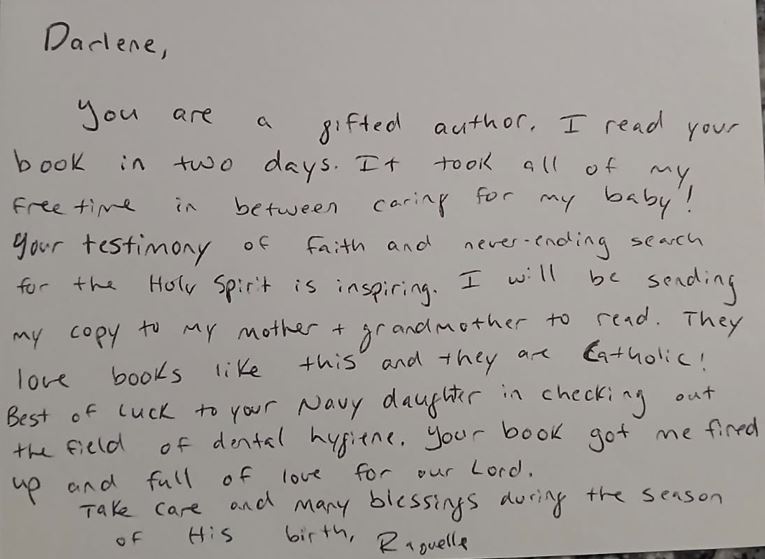 Darlene,
You are a gifted author. I read your
book in two days. It took all of my
free time in between caring for my baby!
Your testimony of faith and never-ending search
for the Holy Spirit is inspiring. I will be sending
my copy to my mother + grandmother to read. They
love books like this and they are Catholic!
Best of luck to your Navy daughter in checking out
the field of dental hygiene. Your book got me fired
up and full of love for our Lord.
Take care and many blessings during the season
of His birth, Raquelle